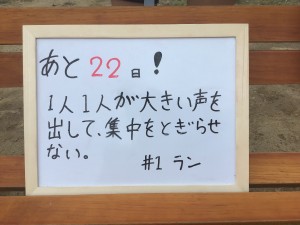 あと22日!
1人1人が大きい声を
出して、集中をとぎらせ
ない。
#1 ラン